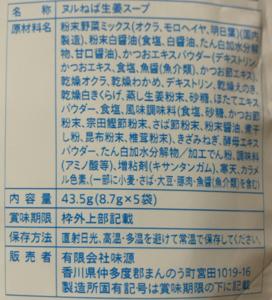 名　称　ヌルねば生姜スープ
原材料名　粉末野菜ミックス(オクラ、モロヘイヤ、明日葉)(国内
製造)、粉末白醤油(食塩、白醤油、たん白加水分解
物、甘口醤油)、かつおエキスパウダー(デキストリン、
かつおエキス、食塩、魚醤(魚介類))、かつお節エキス、
乾燥オクラ、乾燥わかめ、デキストリン、乾燥えのき、
乾燥白きくらげ、蒸し生姜粉末、砂糖、ほたてエキス
パウダー、食塩、風味調味料(食塩、砂糖、かつお節
粉末、宗田鰹節粉末、さば節粉末、粉末醤油、煮干
し粉、昆布粉末、椎茸粉末)、きざみねぎ、酵母エキス
パウダー、たん白加水分解物／加工でん粉、調味料
(アミノ酸等)、増粘剤(キサンタンガム)、寒天、カラメ
ル色素、(一部に小麦・さば・大豆・豚肉・魚醤(魚介類)を含む)
内容量　43.5g(8.7g×5袋)
賞味期限　枠外上部記載
保存方法　直射日光、高温・多湿を避けて常温で保存してください。
販売者　有限会社味源
香川県仲多度郡まんのう町宮田1019-16
製造所固有記号は賞味期限の下に記載